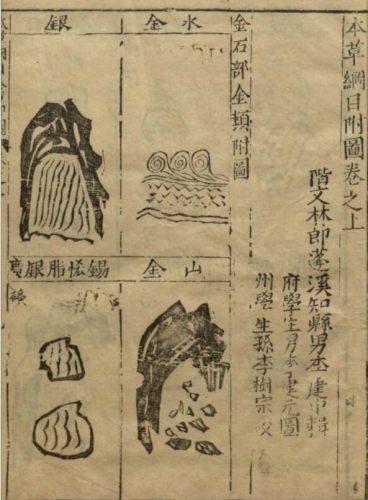 本草綱目附圖卷之上
階文林郎蓬溪知縣男李建中輯
府學生男李建元圖
州學生孫李樹宗校
金石部金類附圖
水金
山金
銀
錫恡脂銀礦